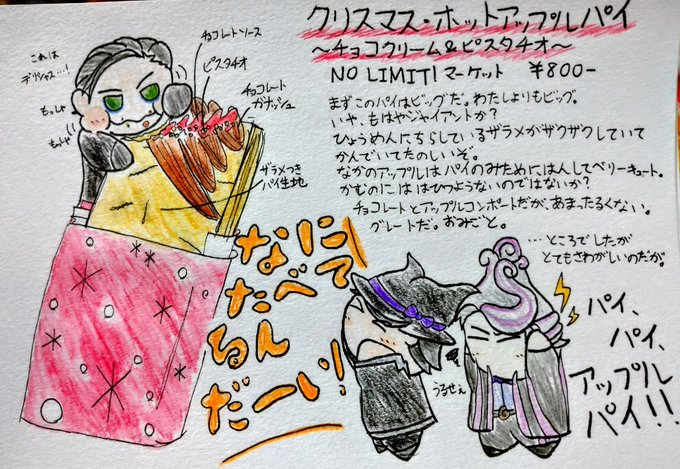 クリスマス・ホットアップルパイ
〜チョコクリーム&ピスタチオ〜
NO LIMIT! マーケット ¥800-
まずこのパイはビッグだ。わたしよりもビッグ。
いや、もはやジャイアントか?
ひょうめんにちらしているザラメがザクザクしていて
かんでいてたのしいぞ。
なかのアップルはパイのみためにはんしてベリーキュート。
かむのにははひつようないのではないか?
チョコレートとアップルコンポートだが、あまったるくない。
グレートだ。おみごと。
…ところでしたが
とてもさわがしいのだが。
これは
デリシャス…!
もっしゃ
もっしゃ
チョコレートソース
ピスタチオ
チョコレート
ガナッシュ
ザラメつき
パイ生地
なに
たべて
るん
だーい!!
うるせぇ
パイ、
パイ、
アップル
パイ!!